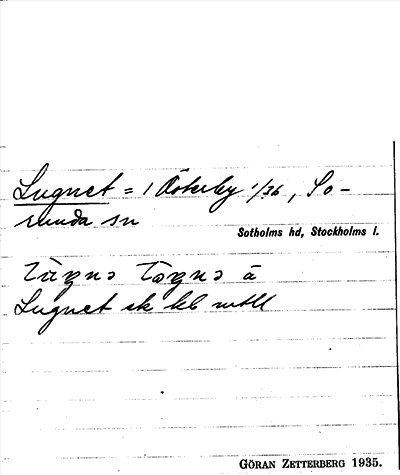 Lugnet = 1 Österby 1/36, So-
runda sn
Sotholms hd, Stockholms l.
Lugnet ek kb mtll
GÖRAN ZETTERBERG 1935.